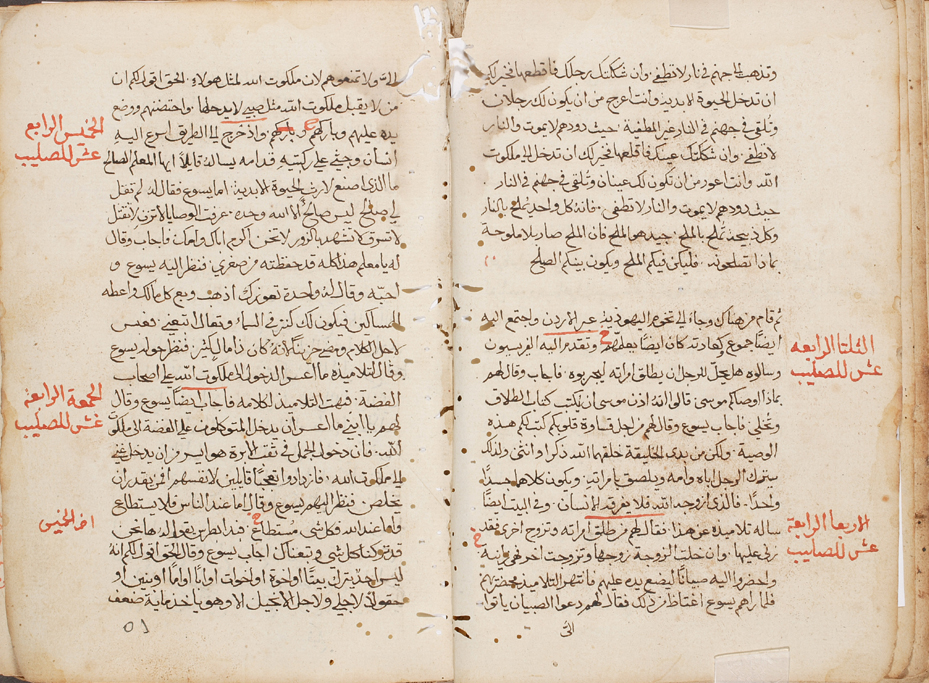 وتذهب الى جهنم في نار لا تطفى. وان شككتك رجلك فاقطعها فخير لك
ان تدخل الحيوة الابدية وانت اعرج من ان يكون لك رجلان
وتلقى في جهنم في النار غير المطفية. حيث دودهم لا يموت والنار
لا تطفى. وان شككتك عينك فاقلعها فخير لك ان تدخل الى ملكوت
الله وانت اعور من ان تكون لك عينان وتلقى في جهنم في النار
حيث دودهم لا يموت والنار لا تطفى. فانه كل واحد يملح بالنار
وكل ذبيحة تملح بالملح. جيد هو الملح فان الملح صار بلا ملوحة
بماذا تصلحونه. فليكن فيكم الملح ويكون بينكم الصلح
ثم قام من هناك وجاء الى تخوم اليهودية عبر الاردن واجتمع اليه
ايضا جموع وكعادته كان ايضا يعلمهم وتقدم اليه الفريسيون
وسالوه هل يحل للرجل ان يطلق امراته ليجربوه. فاجاب وقال لهم
بماذا اوصاكم موسى. قالوا له اذن موسى ان نكتب كتاب الطلاق
وتخلى. فاجاب يسوع وقال لهم من اجل قساوة قلوبكم كتب لكم هذه
الوصية. ولكن من بدى الخليقة خلقهما الله ذكرا وانثى ولذلك
يترك الرجل اباه وامه ويلصق بامراته. ويكون كلاهما جسدا
واحدا. فالذي ازوجه الله فلا يفرقه الانسان. وفي البيت ايضا
ساله تلاميذه عن هذا. فقال لهم من طلق امراته وتزوج اخرى فقد
زنى عليها وان خلت الزوجة زوجها وتزوجت اخر فهي زانية
واحضروا اليه صبيانا ليضع يده عليهم فانتهر التلاميذ محضريهم
فلما راهم يسوع اغتاظ من ذلك فقال لهم دعوا الصبيان ياتوا
الثلثا الرابعه
عشر للصليب
الاربعا الرابعة
عشر للصليب
الي
الي ولا تمنعوهم لان ملكوت الله لمثل هولاء. الحق اقول لكم ان
من لا يقبل ملكوت الله مثل صبي لا يدخلها. واحتضنهم ووضع
يده عليهم وباركهم واذ خرج الى الطريق اسرع اليه
انسان وجثى على ركبتيه قدامه يساله قايلا ايها المعلم الصالح
ما الذي اصنع لارث الحيوة الابدية. اما يسوع فقال له لم تقل
لي صالح ليس صالح الا الله وحده. عرفت الوصايا لا تزن لا تقتل
لا تسرق لا تشهد بالزور لا تخن اكرم اباك وامك. فاجاب وقال
له يا معلم هذا كله قد حفظته من صغري. فنظر اليه يسوع و
احبه وقال له واحدة تعوزك اذهب وبع كل مالك واعطه
المساكين فيكون لك كنز في السماء وتعال اتبعني. فعبس
لاجل الكلام ومضى حزينا لانه كان ذا مال كثير. فنظر حوله يسوع
وقال لتلاميذه ما اعسر الدخول الى ملكوت الله على اصحاب
الفضة. فبهت التلاميذ لكلامه فاجاب ايضا يسوع وقال
لهم يا ابنيي ما اعسر ان يدخل المتوكلون على الفضة الى ملكوت
الله. فان دخول الجمل في ثقب الابرة هو ايسر من ان يدخل غني
الى ملكوت الله. فازدادوا تعجبا قايلين لانفسهم فمن يقدر ان
يخلص. فنظر اليهم يسوع وقال اما عند الناس فلا يستطاع
واما عند الله فكل شي مستطاع. فبدا بطرس يقول له ها نحن
قد تركنا كل شي وتبعناك اجاب يسوع وقال الحق اقول لكم انه
ليس احد يترك بيتا او اخوة او اخوات او ابا او اما او بنين او
حقولا لاجلي ولاجل الانجيل الا وهو ياخذ ماية ضعف
الخميس الرابع
عشر للصليب
الجمعة الرابعة
عشر للصليب
اخر الخميس